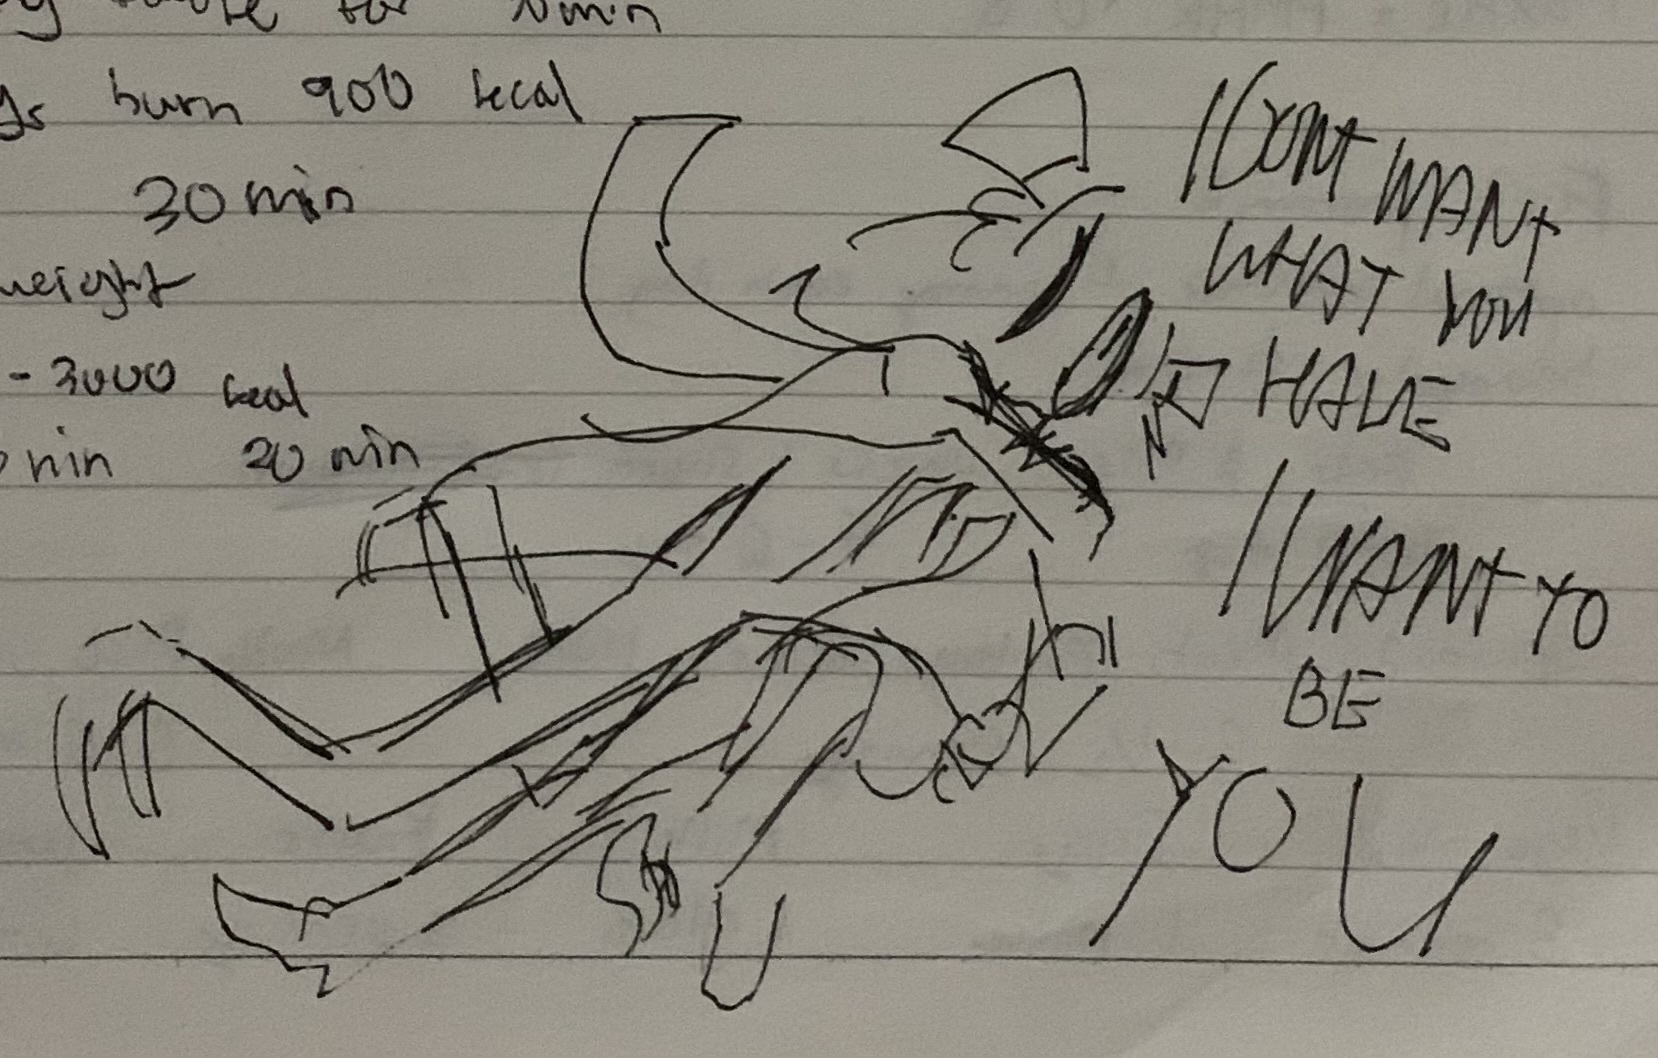 for 10min
burn 900 kcal
30 min
weight
- 3000 kcal
min 20 min
I DONT WANT
WHAT YOU
HAVE
I WANT TO
BE
YOU